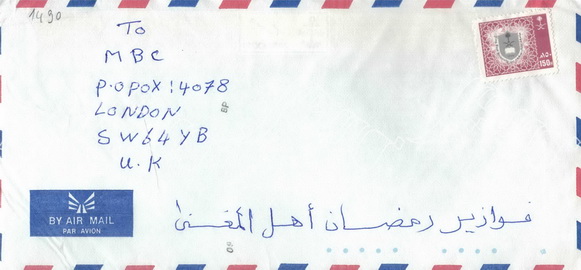 1490
To
MBC
P.OPOX:4078
LONDON
SW64YB
U.K
150
BY AIR MAIL
PAR AVION
فوازير رمضان أهل المغنى